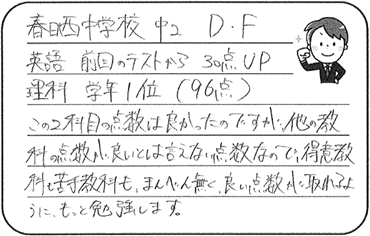 春日西中学校 中2 D・F
英語 前回のテストから 30点UP
理科 学年1位(96点)
この2科目の点数は良かったのですが、他の教
科の点数が良いとは言えない点数なので、得意教
科も苦手教科も、まんべん無く、良い点数が取れるよ
うに、もっと勉強します。